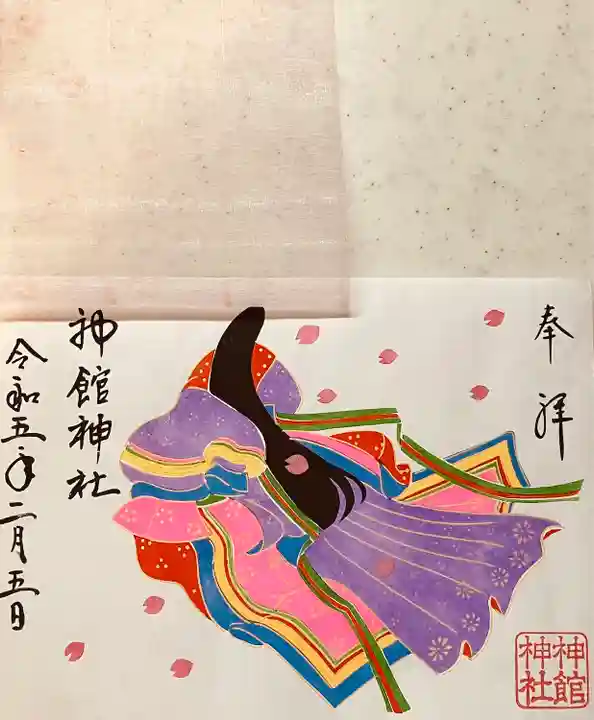 奉拝
神館神社
令和五年二月五日
神館
神社